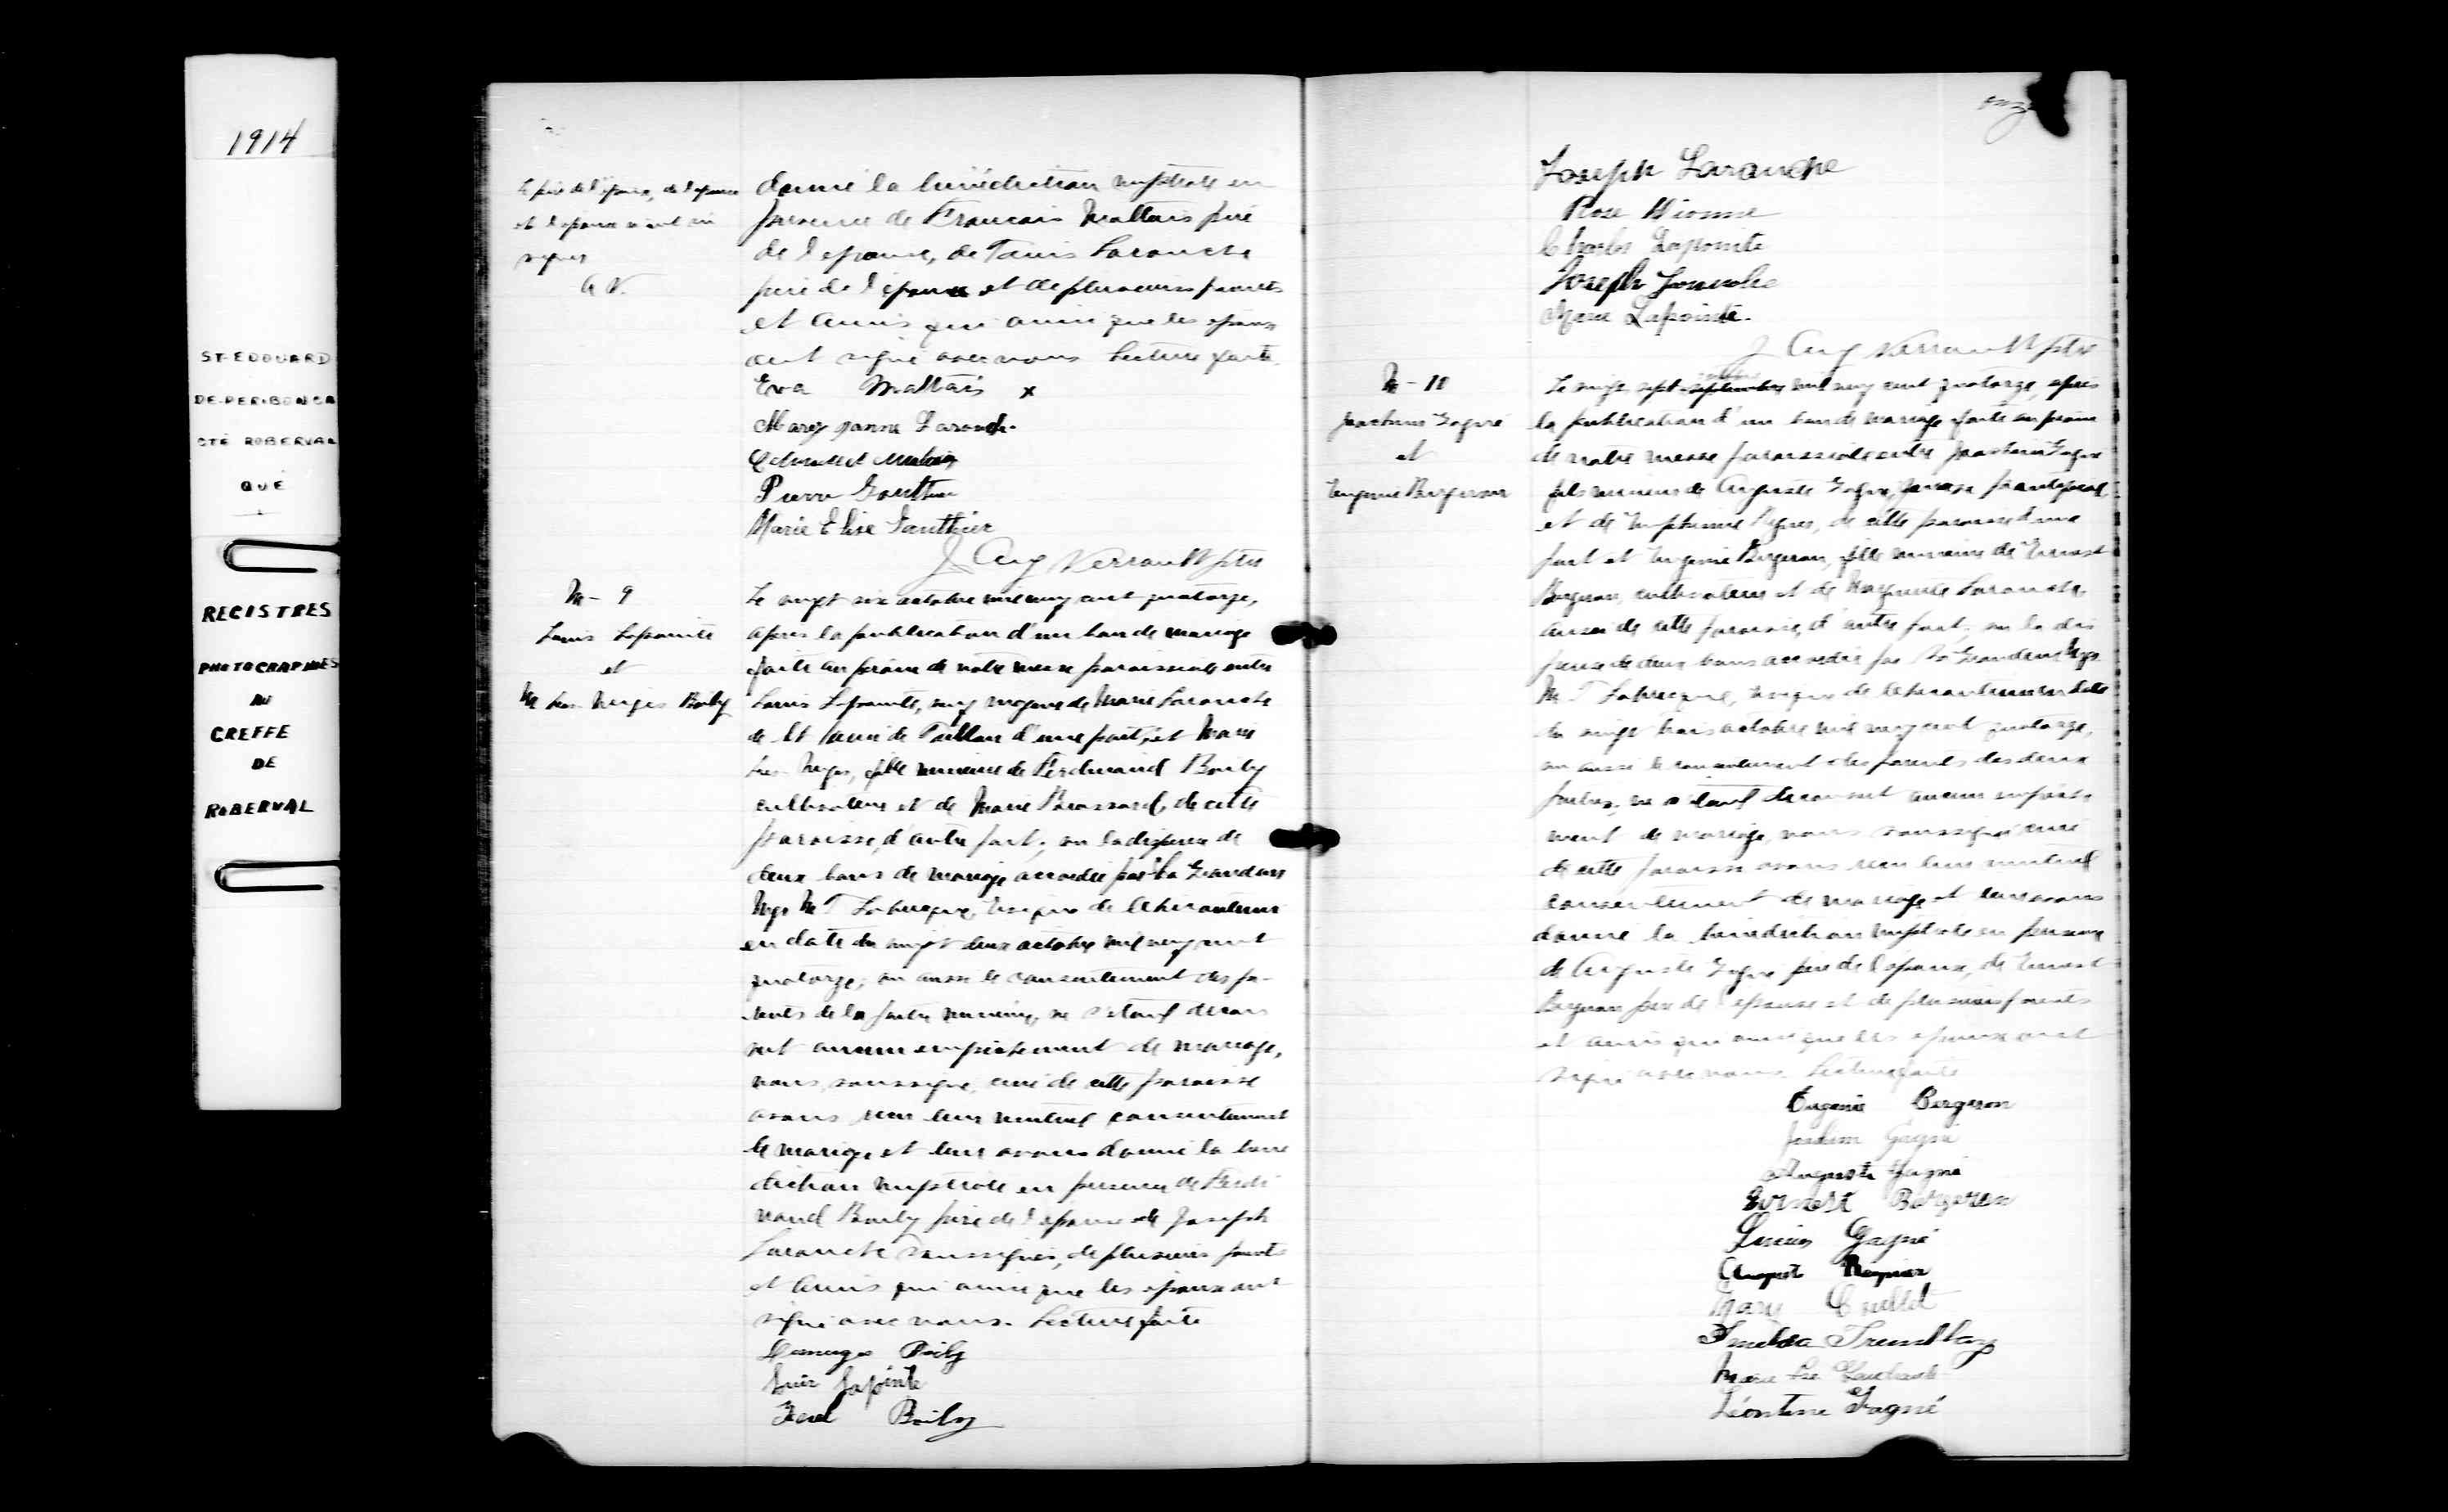 1914
ST-EDOUARD
DE-PERIBONCA
CTÉ ROBERVAL
QUÉ
REGISTRES
PHOTOGRAPHIÉS
AU
GREFFE
DE
ROBERVAL
le père de l'époux, de l'épouse
et l'époux n'ont su
signer
A V.
donné la bénédiction nuptiale en
présence de Francois Maltais père
de l'epouse, de Larouche
père de l'époux et de plusieurs parents
et amis qui ainsi que les époux
ont signé avec nous Lecture faite.
Eva Maltais x
Mary Larouche
Pierre Gauthier
Marie Elise Gauthier
J. Aug Verrault ptre
M - 9
Louis Lapointe
et
M Bouly
Le vingt six octobre mil neuf cent quatorze,
après la publication d'un ban de mariage
faite au prône de notre messe paroissiale entre
Louis Lapointe, de Marie Larouche
de St de Taillon d'une part, et Marie
fille mineure de Ferdinand Bouly
cultivateur et de Marie Brassard, de cette
paroisse, d'autre part; vu la dispense de
deux bans de mariage accordée par Sa Grandeur
Mgr M T Labrecque, Evêque de Chicoutimi
en date du vingt deux octobre mil neuf cent
quatorze; vu aussi le consentement des pa-
rents de la partie mineure, ne s'étant décou
vert aucun empêchement de mariage,
nous, soussigné, curé de cette paroisse
avons reçu leur mutuel consentement
de mariage et leur avons donné la béné
diction nuptiale en présence de Ferdi
nand Bouly père de l'épouse de Joseph
Larouche soussignés, de plusieurs parents
et amis qui ainsi que les époux ont
signé avec nous. Lecture faite
Boily
Louis Lapointe
Boily
onze
Joseph Larouche
Rose Dionne
Charles Lapointe
Joseph
Marie Lapointe.
J Aug Verrault ptre
M - 10
Joachim Gagné
et
Eugenie Bergeron
Le vingt sept mil neuf cent quatorze, après
la publication d'un ban de mariage faite au prône
de notre messe paroissiale entre Joachim Gagné
fils mineur de Auguste Gagné,
et de de cette paroisse d'une
part et Eugenie Bergeron, fille mineure de Ernest
Bergeron, cultivateur et de Marguerite Larouche,
aussi de cette paroisse, d'autre part; vu la dis
pense de deux bans accordée par Sa Grandeur Mgr.
M T Labrecque, Evêque de Chicoutimi en date
du vingt trois octobre mil neuf cent quatorze,
vu aussi le consentement des parents des deux
parties, ne s'étant découvert aucun empêche
ment de mariage, nous soussigné curé
de cette paroisse avons reçu leur mutuel
consentement de mariage et leur avons
donné la bénédiction nuptiale en présence
de Auguste Gagné père de l'époux, de Ernest
Bergeron père de l'épouse et de plusieurs parents
et amis qui ainsi que les époux ont
signé avec nous. Lecture faite
Eugenie Bergeron
Joachim Gagné
Auguste Gagné
Ernest Bergeron
Gagné
Mary Ouellet
Imelda Tremblay
Marie
Léontine Gagné